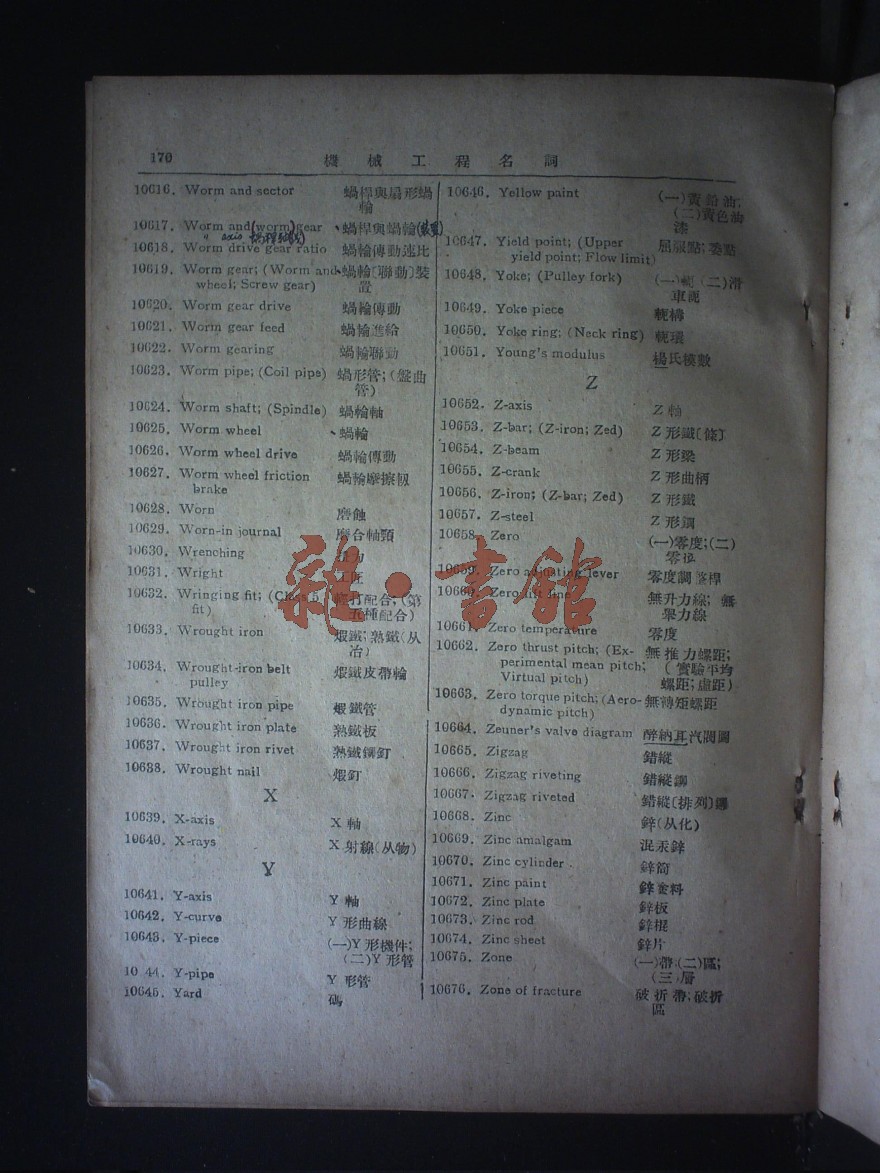 170 機械工程名詞
10616. Worm and sector 蝸桿與扇形蝸
輪
10617. Worm and (worm) gear 蝸桿與蝸輪
10618. Worm drive gear ratio 蝸輪傳動速比
10619. Worm gear; (Worm and 蝸輪〔聯動〕裝
wheel; Screw gear) 置
10620. Worm gear drive 蝸輪傳動
10621. Worm gear feed 蝸輪進給
10622. Worm gearing 蝸輪聯動
10623. Worm pipe; (Coil pipe) 蝸形管;(盤曲
管)
10624. Worm shaft; (Spindle) 蝸輪軸
10625. Worm wheel 蝸輪
10626. Worm wheel drive 蝸輪傳動
10627. Worm wheel friction 蝸輪摩擦軔
brake
10628. Worn 磨蝕
10629. Worn-in journal 磨合軸頸
10630. Wrenching
10631. Wright
10632. Wringing fit; (Class 5 配合;(第
fit) 五種配合)
10633. Wrought iron 煅鐵;熟鐵(从
冶)
10634. Wrought-iron belt 煅鐵皮帶輪
pulley
10635. Wrought iron pipe 煅鐵管
10636. Wrought iron plate 熟鐵板
10637. Wrought iron rivet 熟鐵鉚釘
10638. Wrought nail 煅釘
X
10639. X-axis X 軸
10640. X-rays X 射線(从物)
Y
10641. Y-axis Y 軸
10642. Y-curve Y 形曲線
10643. Y-piece (一)Y 形機件;
(二)Y 形管
10 44. Y-pipe Y 形管
10645. Yard 碼
10646. Yellow paint (一)黃鉛油;
(二)黃色油
漆
10647. Yield point; (Upper 屈服點;委點
yield point; Flow limit)
10648. Yoke; (Pulley fork) (一)軛 (二)滑
車軛
10649. Yoke piece 軛構
10650. Yoke ring; (Neck ring) 軛環
10651. Young's modulus 楊氏模數
Z
10652. Z-axis Z 軸
10653. Z-bar; (Z-iron; Zed) Z 形鐵〔條〕
10654. Z-beam Z 形梁
10655. Z-crank Z 形曲柄
10656. Z-iron; (Z-bar; Zed) Z 形鐵
10657. Z-steel Z 形鋼
10658. Zero (一)零度;(二)
零位
10659. Zero adjusting lever 零度調整桿
10660. Zero lift line 無升力線; 無
舉力線
10661. Zero temperature 零度
10662. Zero thrust pitch; (Ex- 無推力螺距;
perimental mean pitch; (實驗平均
Virtual pitch) 螺距;虛距)
10663. Zero torque pitch; (Aero- 無轉矩螺距
dynamic pitch)
10664. Zeuner's valve diagram 醉納耳汽閥圖
10665. Zigzag 錯縱
10666. Zigzag riveting 錯縱鉚
10667. Zigzag riveted 錯縱〔排列〕鉚
10668. Zinc 鋅(从化)
10669. Zinc amalgam 混汞鋅
10670. Zinc cylinder 鋅筒
10671. Zinc paint 鋅塗料
10672. Zinc plate 鋅板
10673. Zinc rod 鋅棍
10674. Zinc sheet 鋅片
10675. Zone (一)帶;(二)區;
(三)層
10676. Zone of fracture 破折帶;破折
區
雜·書館